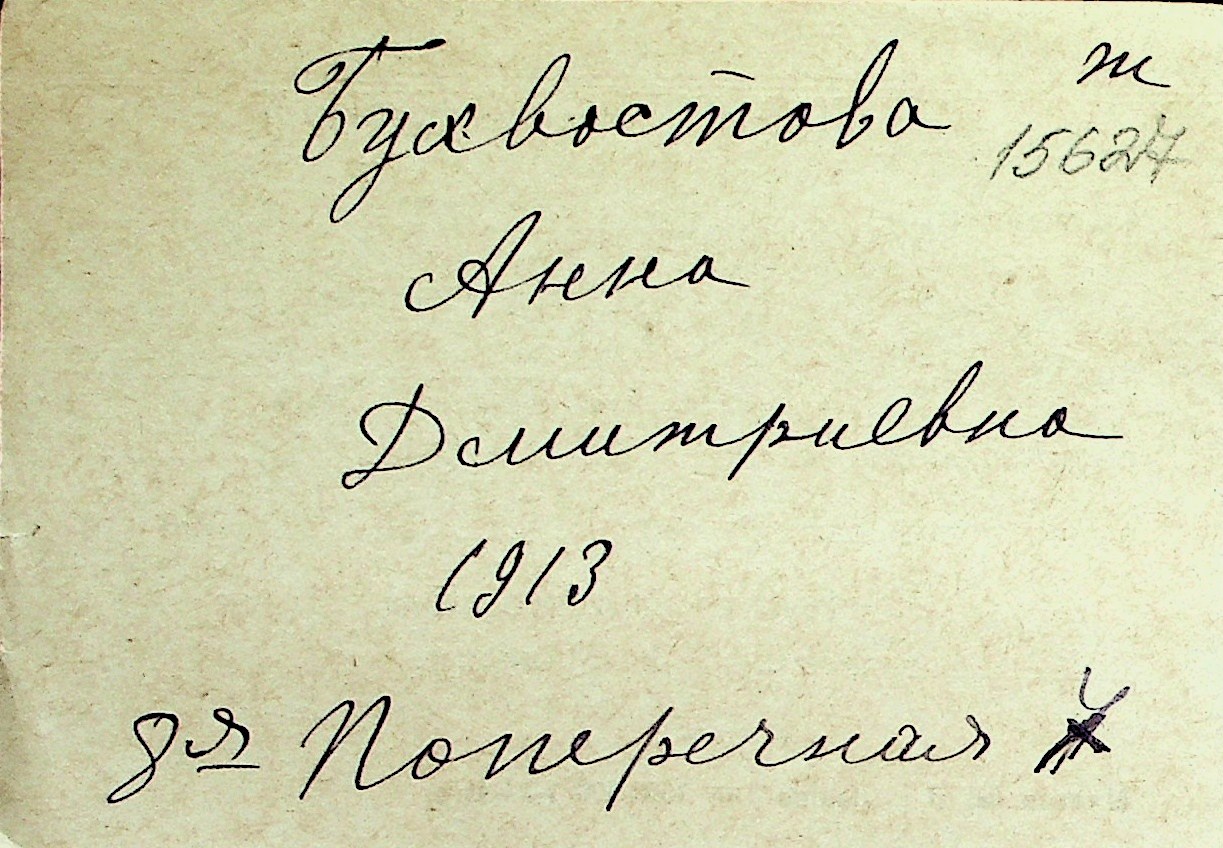 Бухвостова т
15627
Анна
Дмитриевна
1913
д-я Поперечная